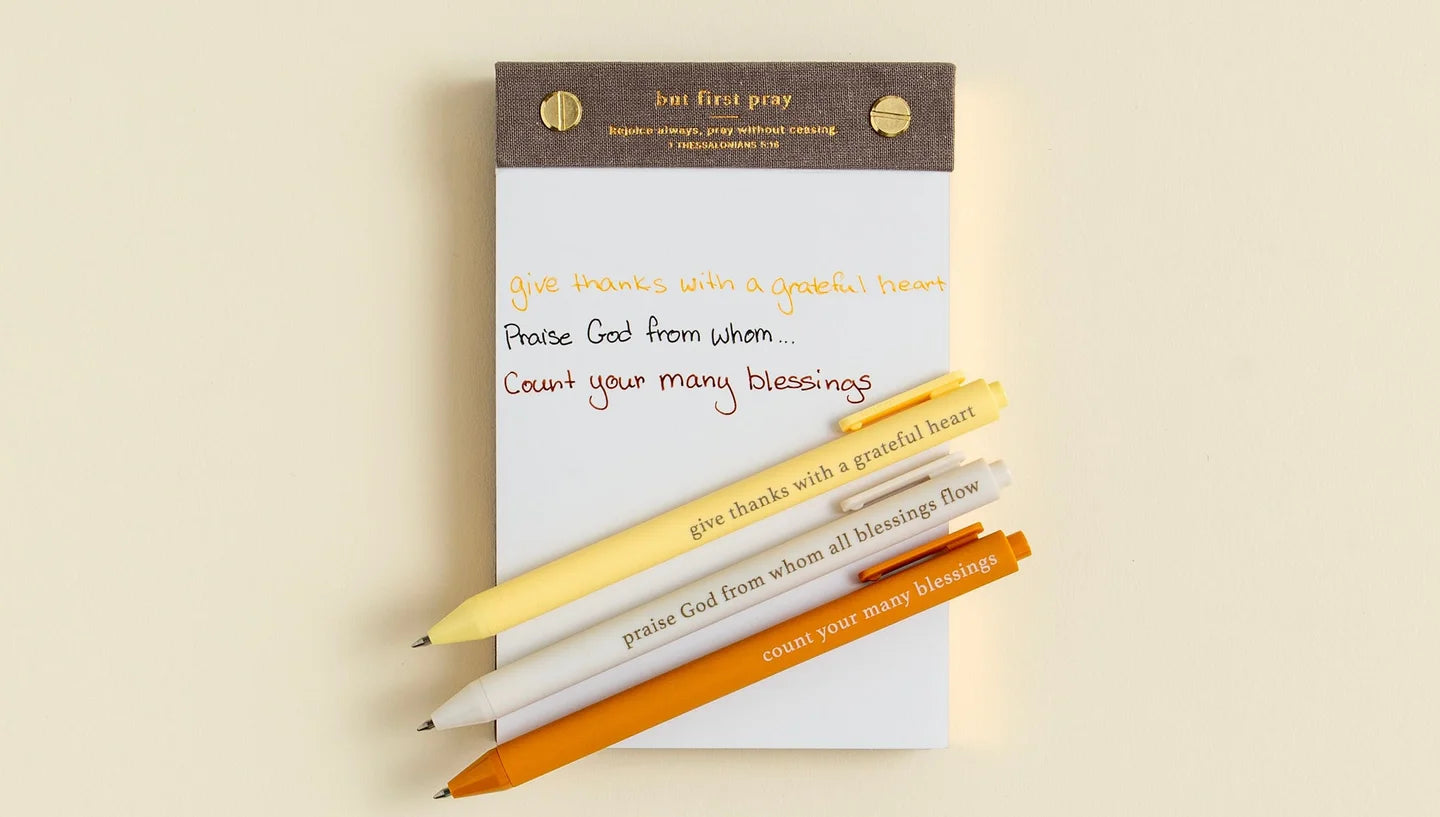 but first pray
Rejoice always, pray without ceasing.
1 THESSALONIANS 5:16
give thanks with a grateful heart
Praise God from whom...
Count your many blessings
give thanks with a grateful heart
praise God from whom all blessings flow
count your many blessings